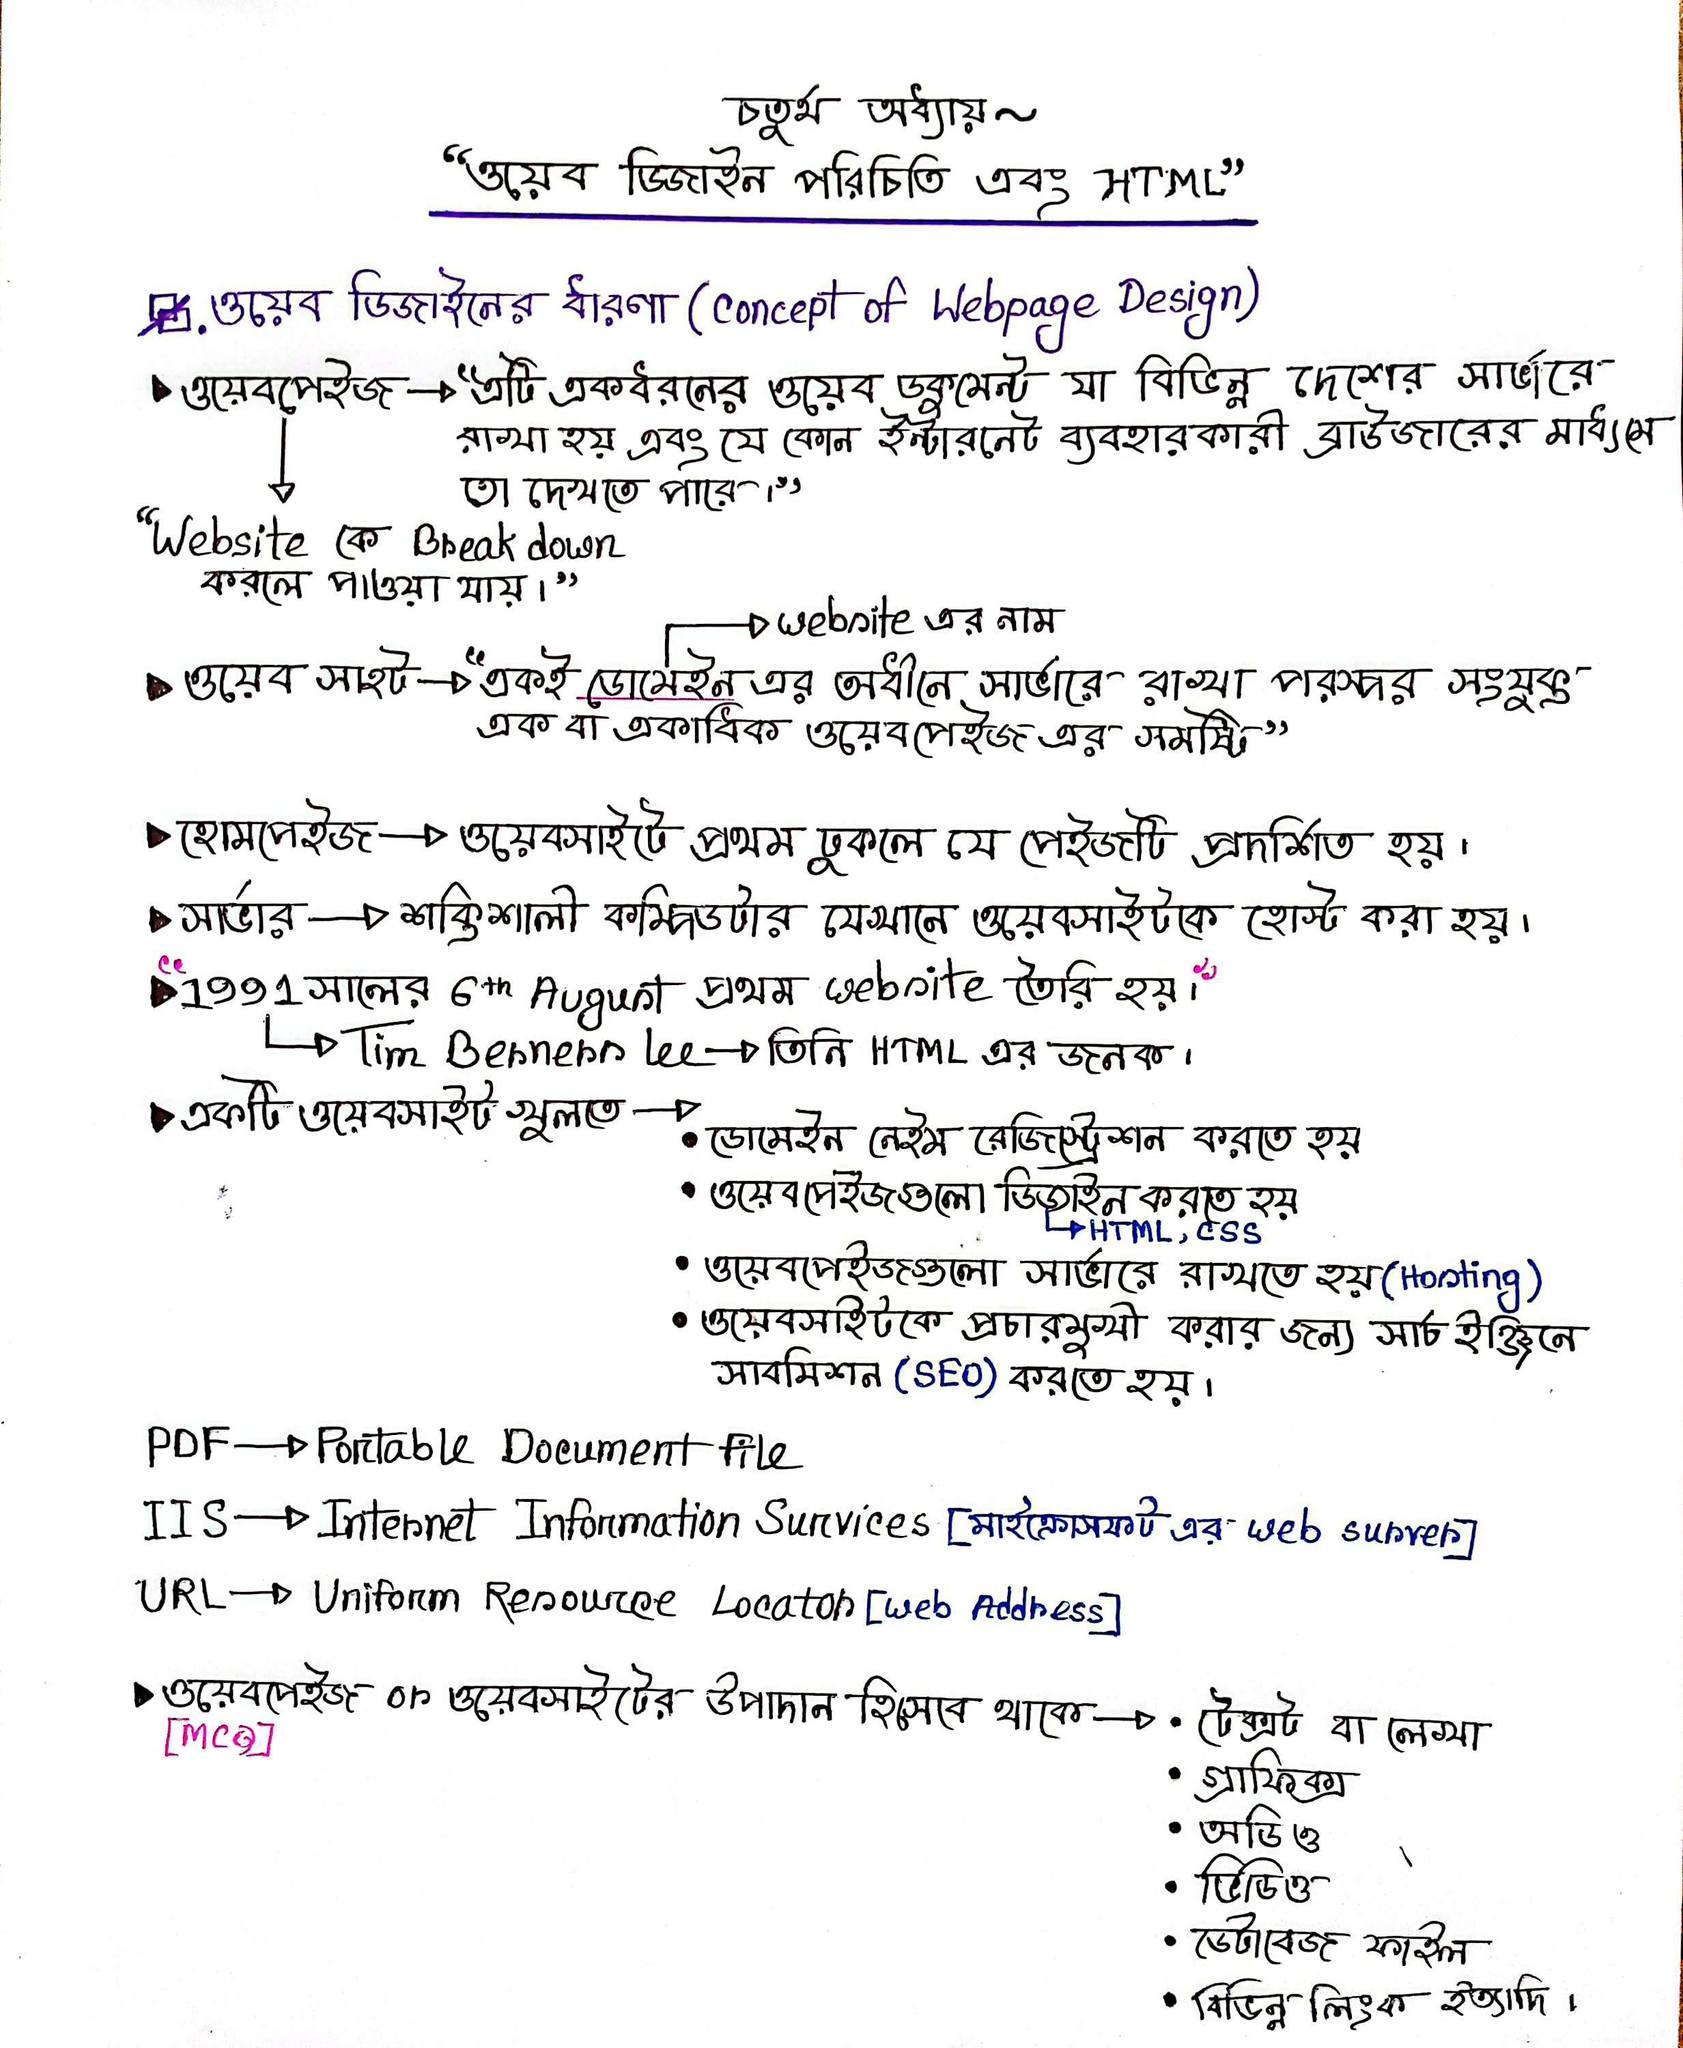 চতুর্থ অধ্যায়~
“ওয়েব ডিজাইন পরিচিতি এবং HTML”
ওয়েব ডিজাইনের ধারণা (Concept of Webpage Design)
▶ ওয়েবপেইজ → “এটি একধরনের ওয়েব ডকুমেন্ট যা বিভিন্ন দেশের সার্ভারে
রাখা হয় এবং যে কোন ইন্টারনেট ব্যবহারকারী ব্রাউজারের মাধ্যমে
তা দেখতে পারে।”
“Website কে Break down
করলে পাওয়া যায়।”
→ website এর নাম
▶ ওয়েব সাইট → “একই ডোমেইন এর অধীনে সার্ভারে রাখা পরস্পর সংযুক্ত
এক বা একাধিক ওয়েবপেইজ এর সমষ্টি”
▶ হোমপেইজ → ওয়েবসাইটে প্রথম ঢুকলে যে পেইজটি প্রদর্শিত হয়।
▶ সার্ভার → শক্তিশালী কম্পিউটার যেখানে ওয়েবসাইটকে হোস্ট করা হয়।
▶ “1991 সালের 6th August প্রথম website তৈরি হয়।”
→ Tim Berners Lee → তিনি HTML এর জনক।
▶ একটি ওয়েবসাইট খুলতে →
• ডোমেইন নেইম রেজিস্ট্রেশন করতে হয়
• ওয়েবপেইজগুলো ডিজাইন করতে হয়
→ HTML, CSS
• ওয়েবপেইজগুলো সার্ভারে রাখতে হয় (Hosting)
• ওয়েবসাইটকে প্রচারমুখী করার জন্য সার্চ ইঞ্জিনে
সাবমিশন (SEO) করতে হয়।
PDF → Portable Document file
IIS → Internet Information Survices [মাইক্রোসফট এর web surver]
URL → Uniform Resource Locator [web Address]
▶ ওয়েবপেইজ or ওয়েবসাইটের উপাদান হিসেবে থাকে → • টেক্সট বা লেখা
[MCQ]
• গ্রাফিক্স
• অডিও
• ভিডিও
• ডেটাবেজ ফাইল
• বিভিন্ন লিংক ইত্যাদি।